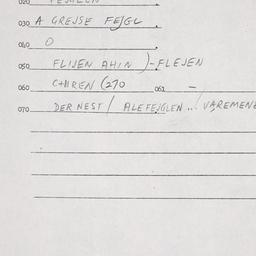 020
030 A GREJSE FEJGL
040 O
050 FLIJEN AHIN )-FLEJEN
060 (270 061 -
070 DER NEST / ALEFEJGLEN ..